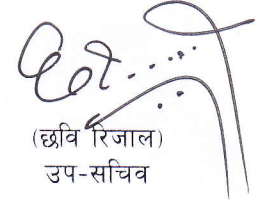 (छवि रिजाल)
उप-सचिव